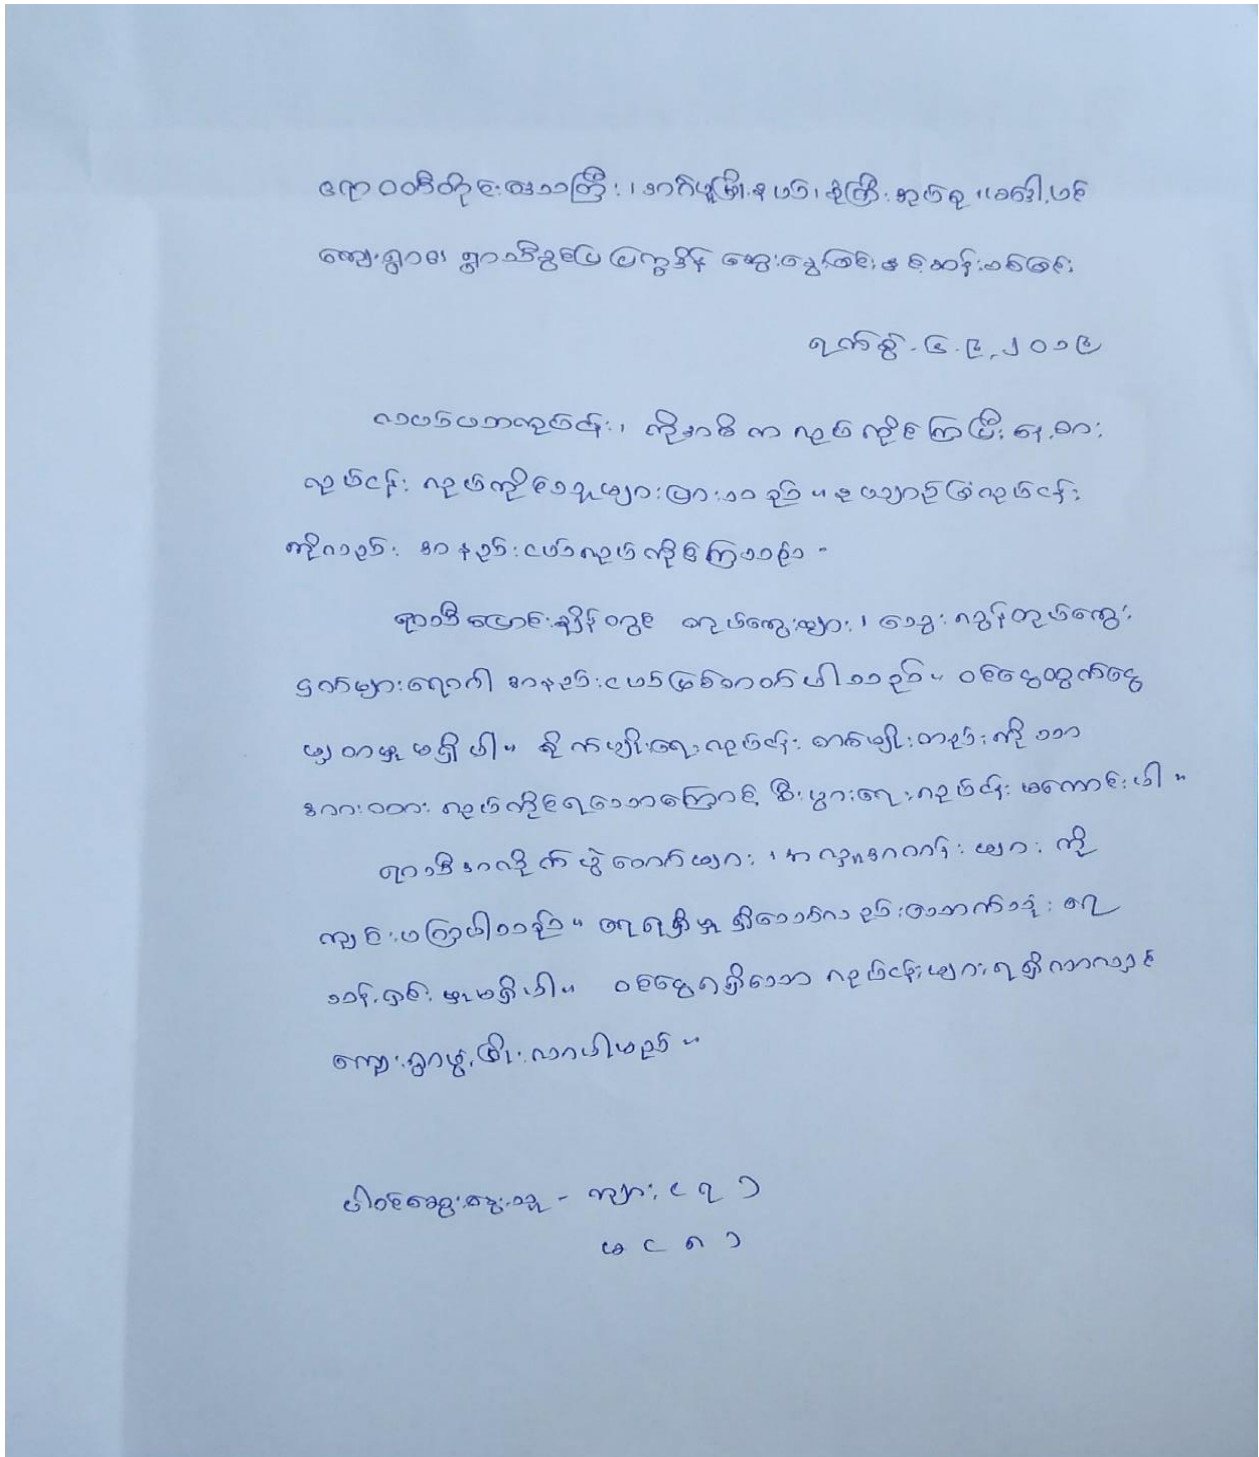 ဧရာဝတီတိုင်းဒေသကြီး၊ ဘိုကလေးမြို့နယ်၊ စုံကြီးအုပ်စု၊
ကျေးရွာ၏ ရွာသီခွင်ပြပြက္ခဒိန် ဆွေးနွေးခြင်းနှင့်ဆန်းစစ်ခြင်း
ရက်စွဲ - ၄.၉.၂၀၁၉
လယ်ယာလုပ်ငန်း၊ ကိုအဓိက လုပ်ကိုင်ကြပြီး နေ့စား
လုပ်ငန်း လုပ်ကိုင်သူများများသည်။ ဥယျာဉ်ခြံလုပ်ငန်း
ကိုလည်း အနည်းငယ်လုပ်ကိုင်ကြသည်။
ရာသီပြောင်းချိန်တွင် တုပ်ကွေးဖျား၊ သွေးလွန်တုပ်ကွေး
ငှက်ဖျားရောဂါ အနည်းငယ်ဖြစ်တတ်ပါသည်။ ဝင်ငွေထွက်ငွေ
မျှတမှုမရှိပါ။ စိုက်ပျိုးရေးလုပ်ငန်း တစ်မျိုးတည်းကိုသာ
အားထား လုပ်ကိုင်ရသောကြောင့် စီးပွားရေးလုပ်ငန်း မကောင်းပါ။
ရာသီအလိုက် ပွဲတော်များ၊ အလှူအတန်းများ ကို
ကျင်းပကြပါသည်။ ရေရရှိမှု ရှိသော်လည်းသောက်သုံးရေ
သန့်ရှင်းမှုမရှိပါ။ ဝင်ငွေရရှိသော လုပ်ငန်းများရရှိလာလျှင်
ကျေးရွာဖွံ့ဖြိုးလာပါမည်။
ပါဝင်ဆွေးနွေးသူ - ကျား ၄ ရ ၁
မ ၄ ၈ ၁